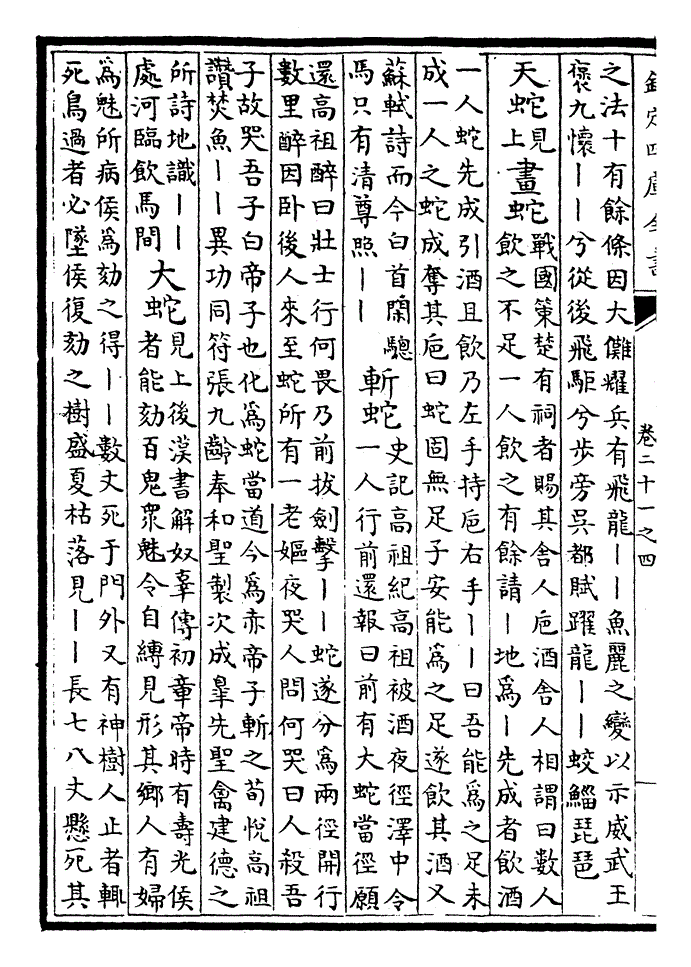 欽定四庫全書
卷二十一之四
之法十有餘條因大儺耀兵有飛龍丨丨魚麗之變以示威武王
褒九懷丨丨兮從後飛駏兮步旁吳都賦躍龍丨丨蛟鯔琵琶
天蛇見上
畫蛇
戰國策楚有祠者賜其舍人巵酒舍人相謂曰數人
飲之不足一人飲之有餘請丨地為丨先成者飲酒
一人蛇先成引酒且飲乃左手持巵右手丨丨曰吾能為之足未
成一人之蛇成奪其巵曰蛇固無足子安能為之足遂飲其酒又
蘇軾詩而今白首閑驄
馬只有清尊照丨丨
斬蛇
史記高祖紀高祖被酒夜徑澤中令
一人行前還報曰前有大蛇當徑願
還高祖醉曰壯士行何畏乃前拔劍擊丨丨蛇遂分為兩徑開行
數里醉因卧後人來至蛇所有一老嫗夜哭人問何哭曰人殺吾
子故哭吾子白帝子也化為蛇當道今為赤帝子斬之荀悅高祖
讚焚魚丨丨異功同符張九齡奉和聖製次成皐先聖禽建德之
所詩地識丨丨
處河臨飲馬間
大蛇
見上後漢書解奴辜傳初章帝時有壽光侯
者能劾百鬼眾魅令自縛見形其鄉人有婦
為魅所病侯為劾之得丨丨數丈死于門外又有神樹人止者輒
死鳥過者必墜侯復劾之樹盛夏枯落見丨丨長七八丈懸死其